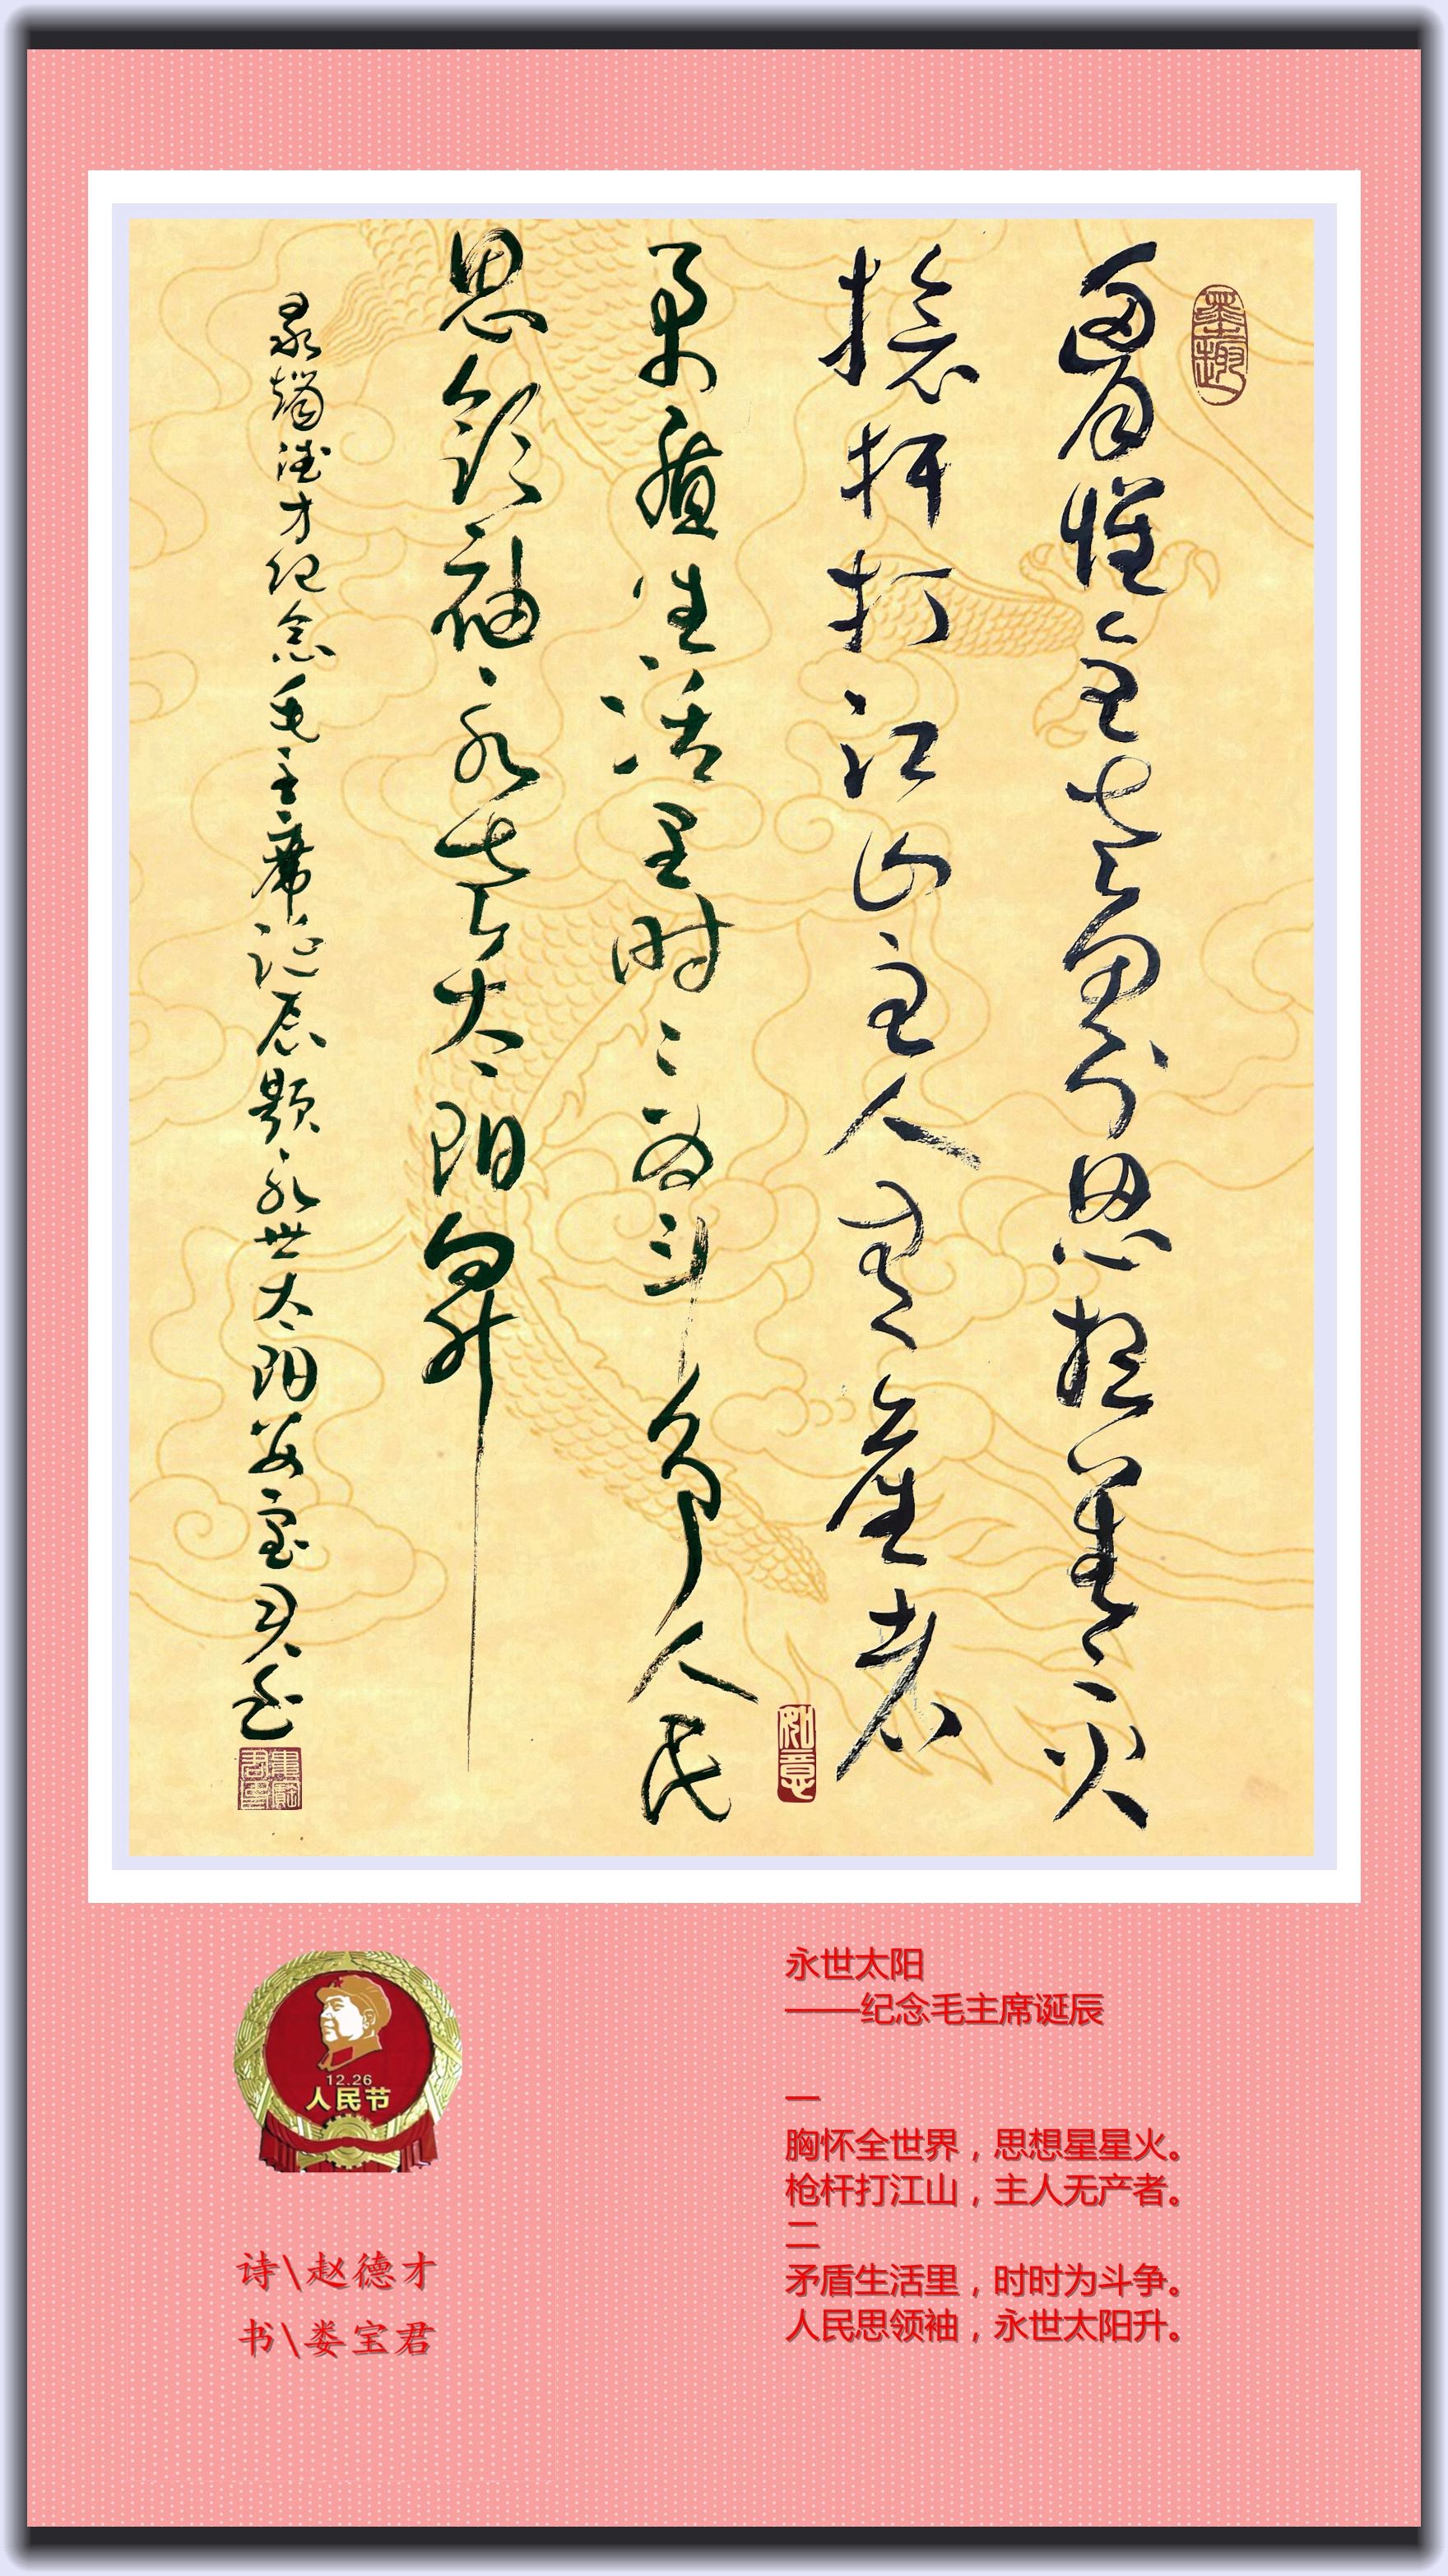 墨趣
胸怀全世界思想星星火
枪杆打江山主人无产者
如意
矛盾生活里时时为斗争人民
思领袖永世太阳升
录赵德才纪念毛主席诞辰题永世太阳娄宝君
12.26
人民节
诗\赵德才
书\娄宝君
永世太阳
——纪念毛主席诞辰
一
胸怀全世界，思想星星火。
枪杆打江山，主人无产者。
二
矛盾生活里，时时为斗争。
人民思领袖，永世太阳升。